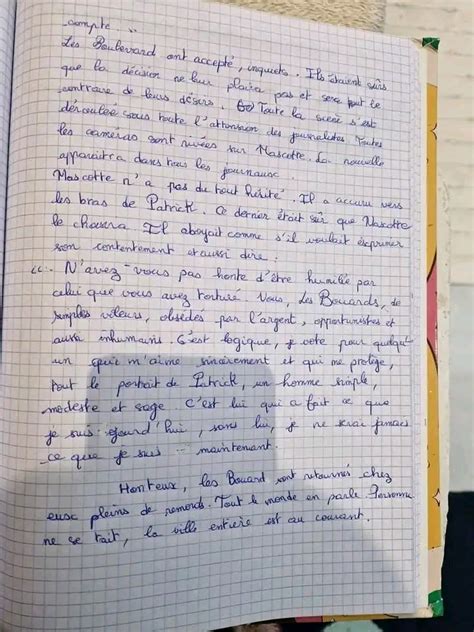 compte "
Les Boulevard ont accepté, inquiets. Ils étaient sûrs
que la décision ne leur plaira pas et sera tout le
contraire de leurs désirs. Toute la scène s'est
déroulée sous toute l'attension des journalistes. Toutes
les caméras sont rivées sur Mascotte. La nouvelle
apparaitra dans tous les journaux
Mascotte n'a pas du tout hésité. Il a accouru vers
les bras de Patrick. Ce dernier était sûr que Mascotte
le choisira. Il aboyait comme s'il voulait exprimer
son contentement et aussi dire :
"- N'avez-vous pas honte d'être humilié par
celui que vous avez torturé. Vous, les Bouards, de
simples voleurs, obsédés par l'argent, opportunistes et
aussi inhumains. C'est logique, je vote pour quelqu'
un qui m'aime sincèrement et qui me protège,
tout le portrait de Patrick, un homme simple,
modeste et sage. C'est lui qui a fait ce que
je suis ajourd'hui, sans lui, je ne serai jamais
ce que je suis maintenant.
Honteux, les Bouard sont retournés chez
eux pleins de remords. Tout le monde en parle. Personne
ne se tait, la ville entière est au courant.